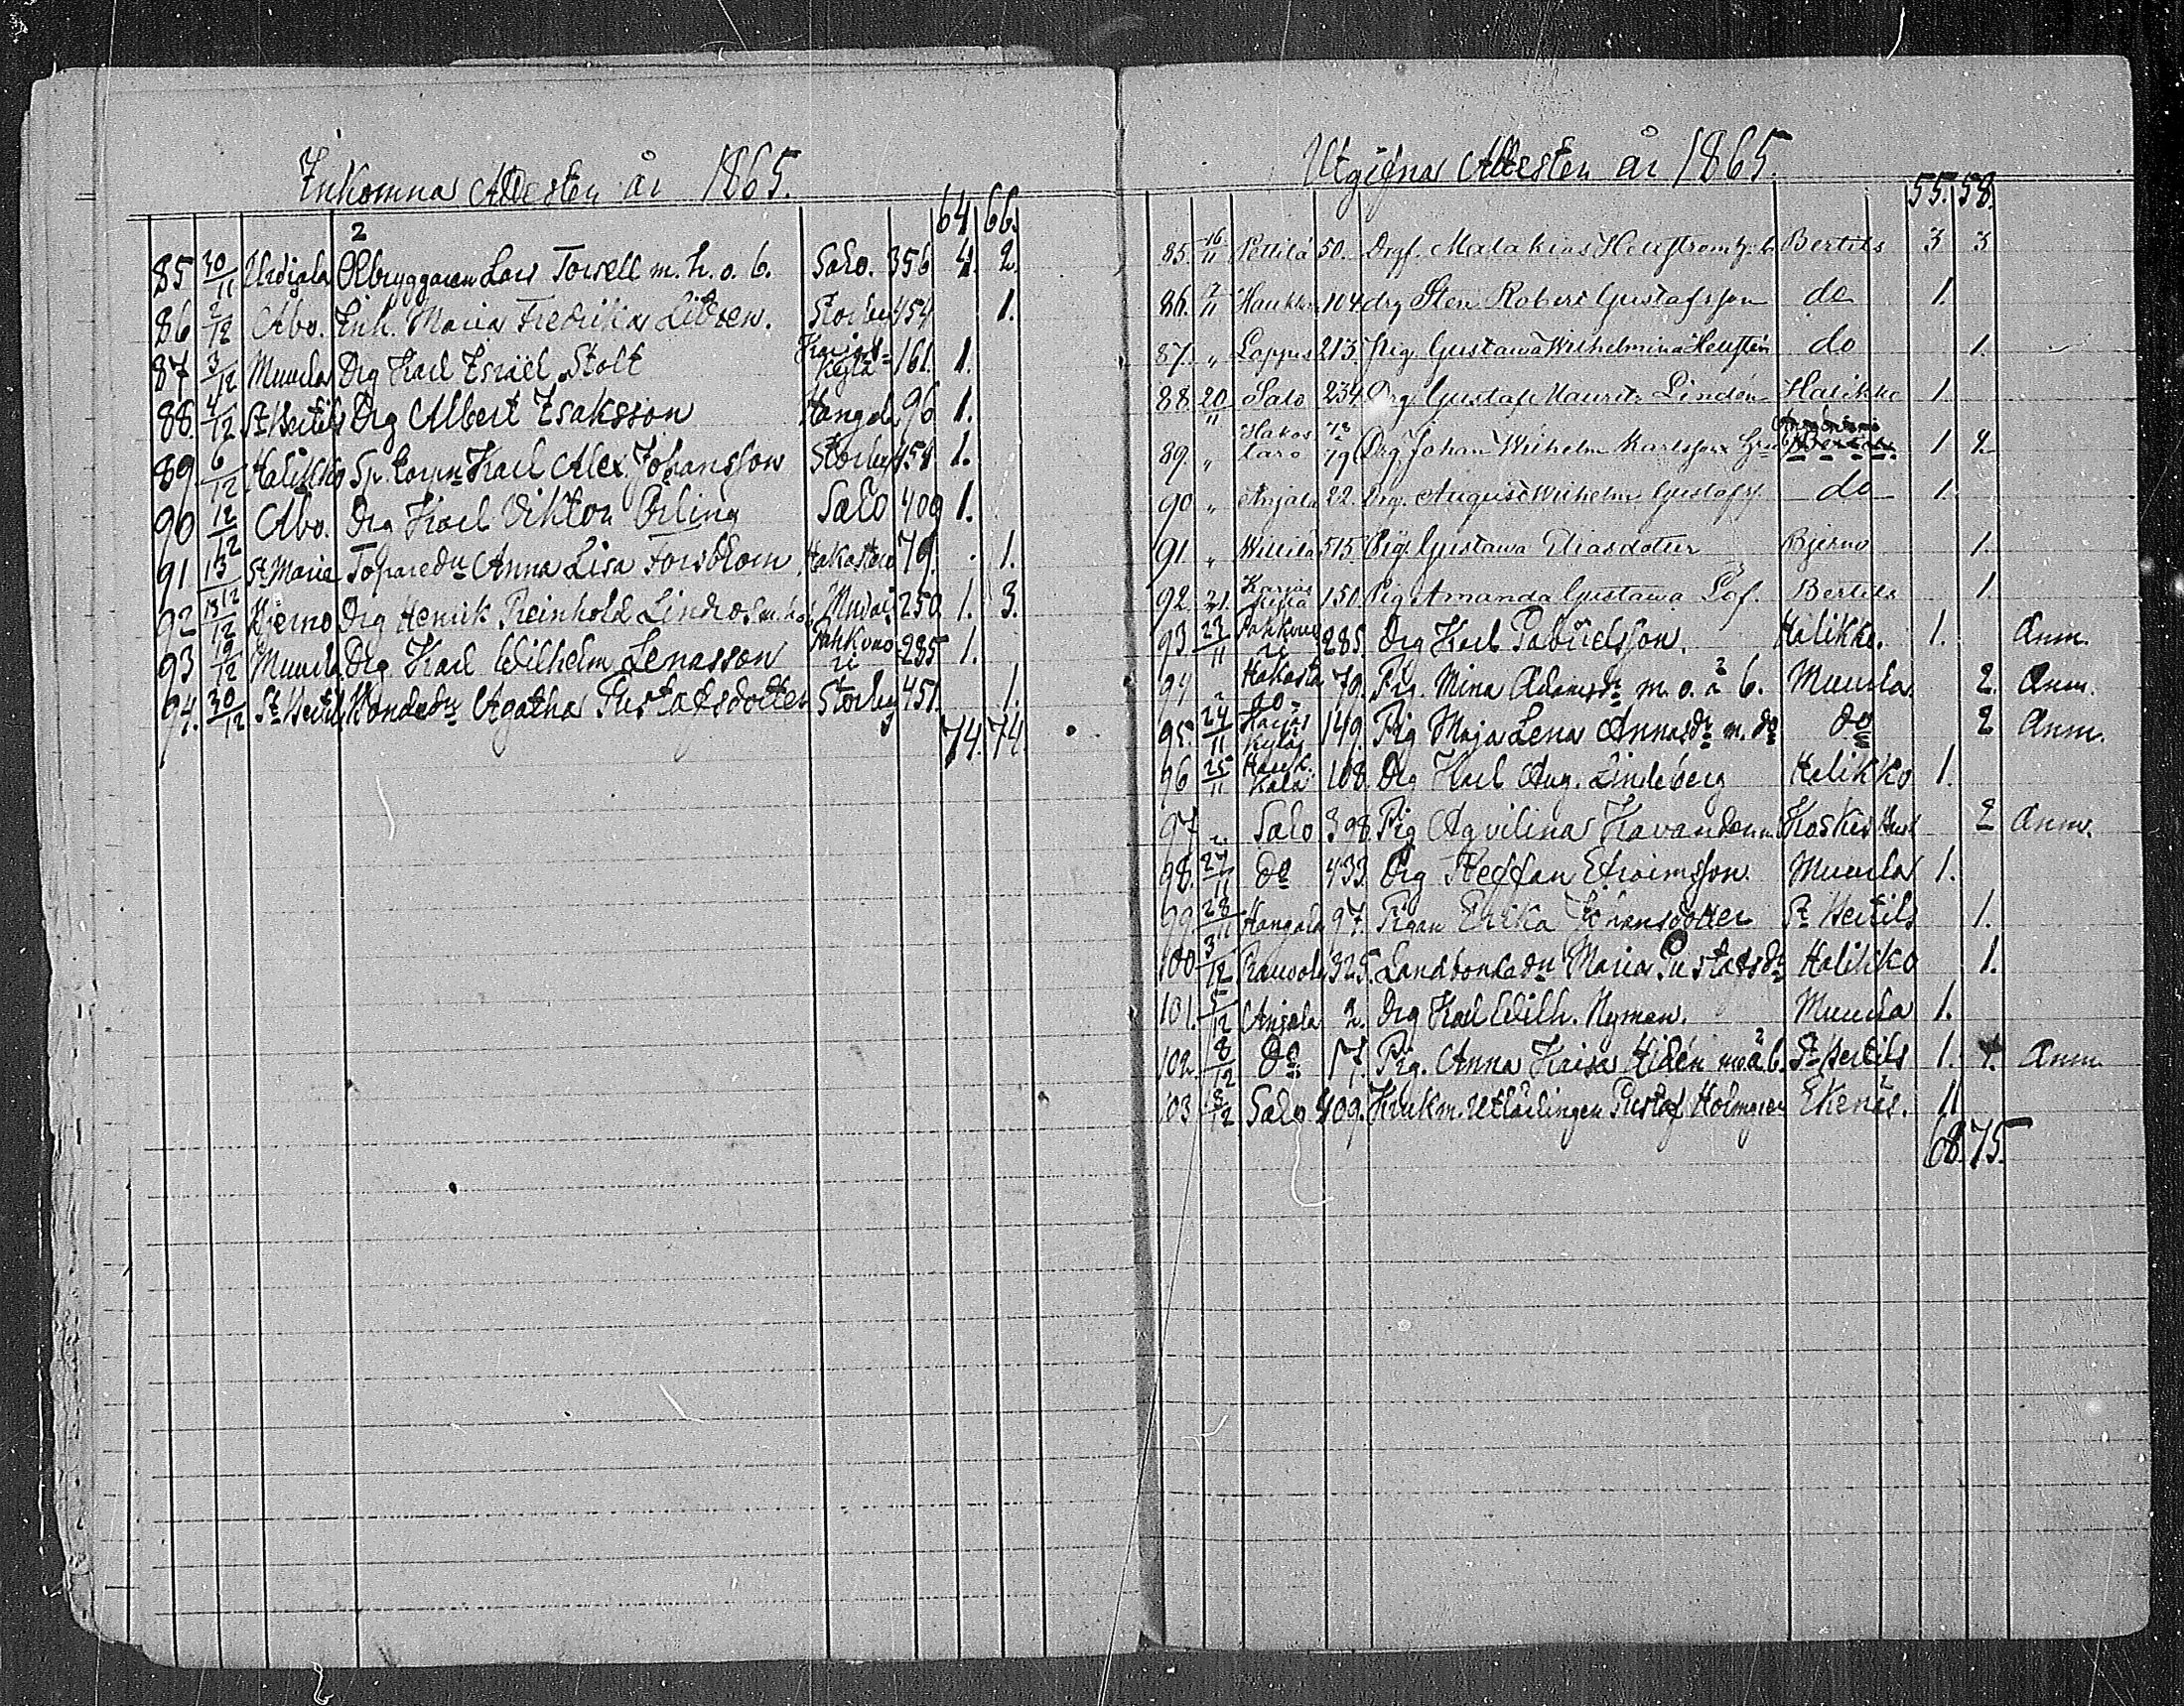 Inkomna Attester år 1865.
64 66
85 30/11 Urdiala Ölbryggaren Lars Torsell m. h. o. b. Salo. 356 4. 2.
86 2/12 Åbo. Enk. Maria Fredrika Litoen. Storby 454 1.
87 3/12 Muurla Drg Karl Israël Stolt Karjaskylä 161. 1.
88. 4/12 St Bertils Drg Albert Isaksson Hangola 96 1.
89 6/12 Halikko Sp. torpn Karl Alex. Johansson Storby 454 1.
90 12/12 Åbo. Drg Karl Viktor Örling Salo 409 1.
91 13/12 St Marie Anna Lisa Forsblom Hakastaro 79. 1.
92 Bjerno Drg Henrik Reinhold Lindros 250 1. 3.
93 19/12 Muurla Drg. Karl Wilhelm Lenasson 285 1.
94. 30/12 St Bertils Agatha Gustafsdotter Storby 451. 1.
74. 74.
Utgifna Attester år 1865.
55. 58.
85. 16/11 Pettilä 50. Malakias Bertils 3 3
86. Haukk 104 drg Sten Robert Gustafsson do 1.
87. " Loppus 213. Pig. Gustawa Wilhelmina do 1.
88. 20/11 Salo 234. Drg. Gustaf Mauritz Linden Halikko 1.
89. " Hakostaro 78/79 Drg. Johan Wilhelm Karlsson 1
90 " Anjala 22. Drg. August Wilhelm Gustafss. do 1.
91. " 515. Pig. Gustawa Eliasdotter Bjerno 1.
92. 21. Karjaskylä 150. Pig Amanda Gustawa Löf. Bertils 1.
93 23/11 285. Drg Karl Gabrielsson. Halikko. 1. Anm.
94 " Hakasta 79. Pig. Mina Adamsdr m. o. ä b. Muurla. 2. Anm.
95. 24/11 Karjaskylä 149. Pig Maja Lena Annasdr m. do do 2 Anm.
96 25/11 Haukkala 108. Drg Karl Aug. Lindeberg Halikko 1.
97 " Salo 398. Pig Aqvilina Koskis 2 Anm.
98. 27/11 do 433. Drg Steffan Efraimsson. Muurla 1.
99. 28/11 Hangola 97. Pigan Erika Johansdotter St Bertils 1.
100. 3/12 325. Landbondedn Maria Gustafsdr Halikko 1.
101. 5/12 Anjala 2. Drg Karl Wilh. Nyman. Muurla 1.
102. 8/12 do 17. Pig. Anna Kaisa Hiden m ä b. St Bertils 1. Anm
103. 8/12 Salo 409. Gustaf Holmgren Ekenäs.
68. 75.